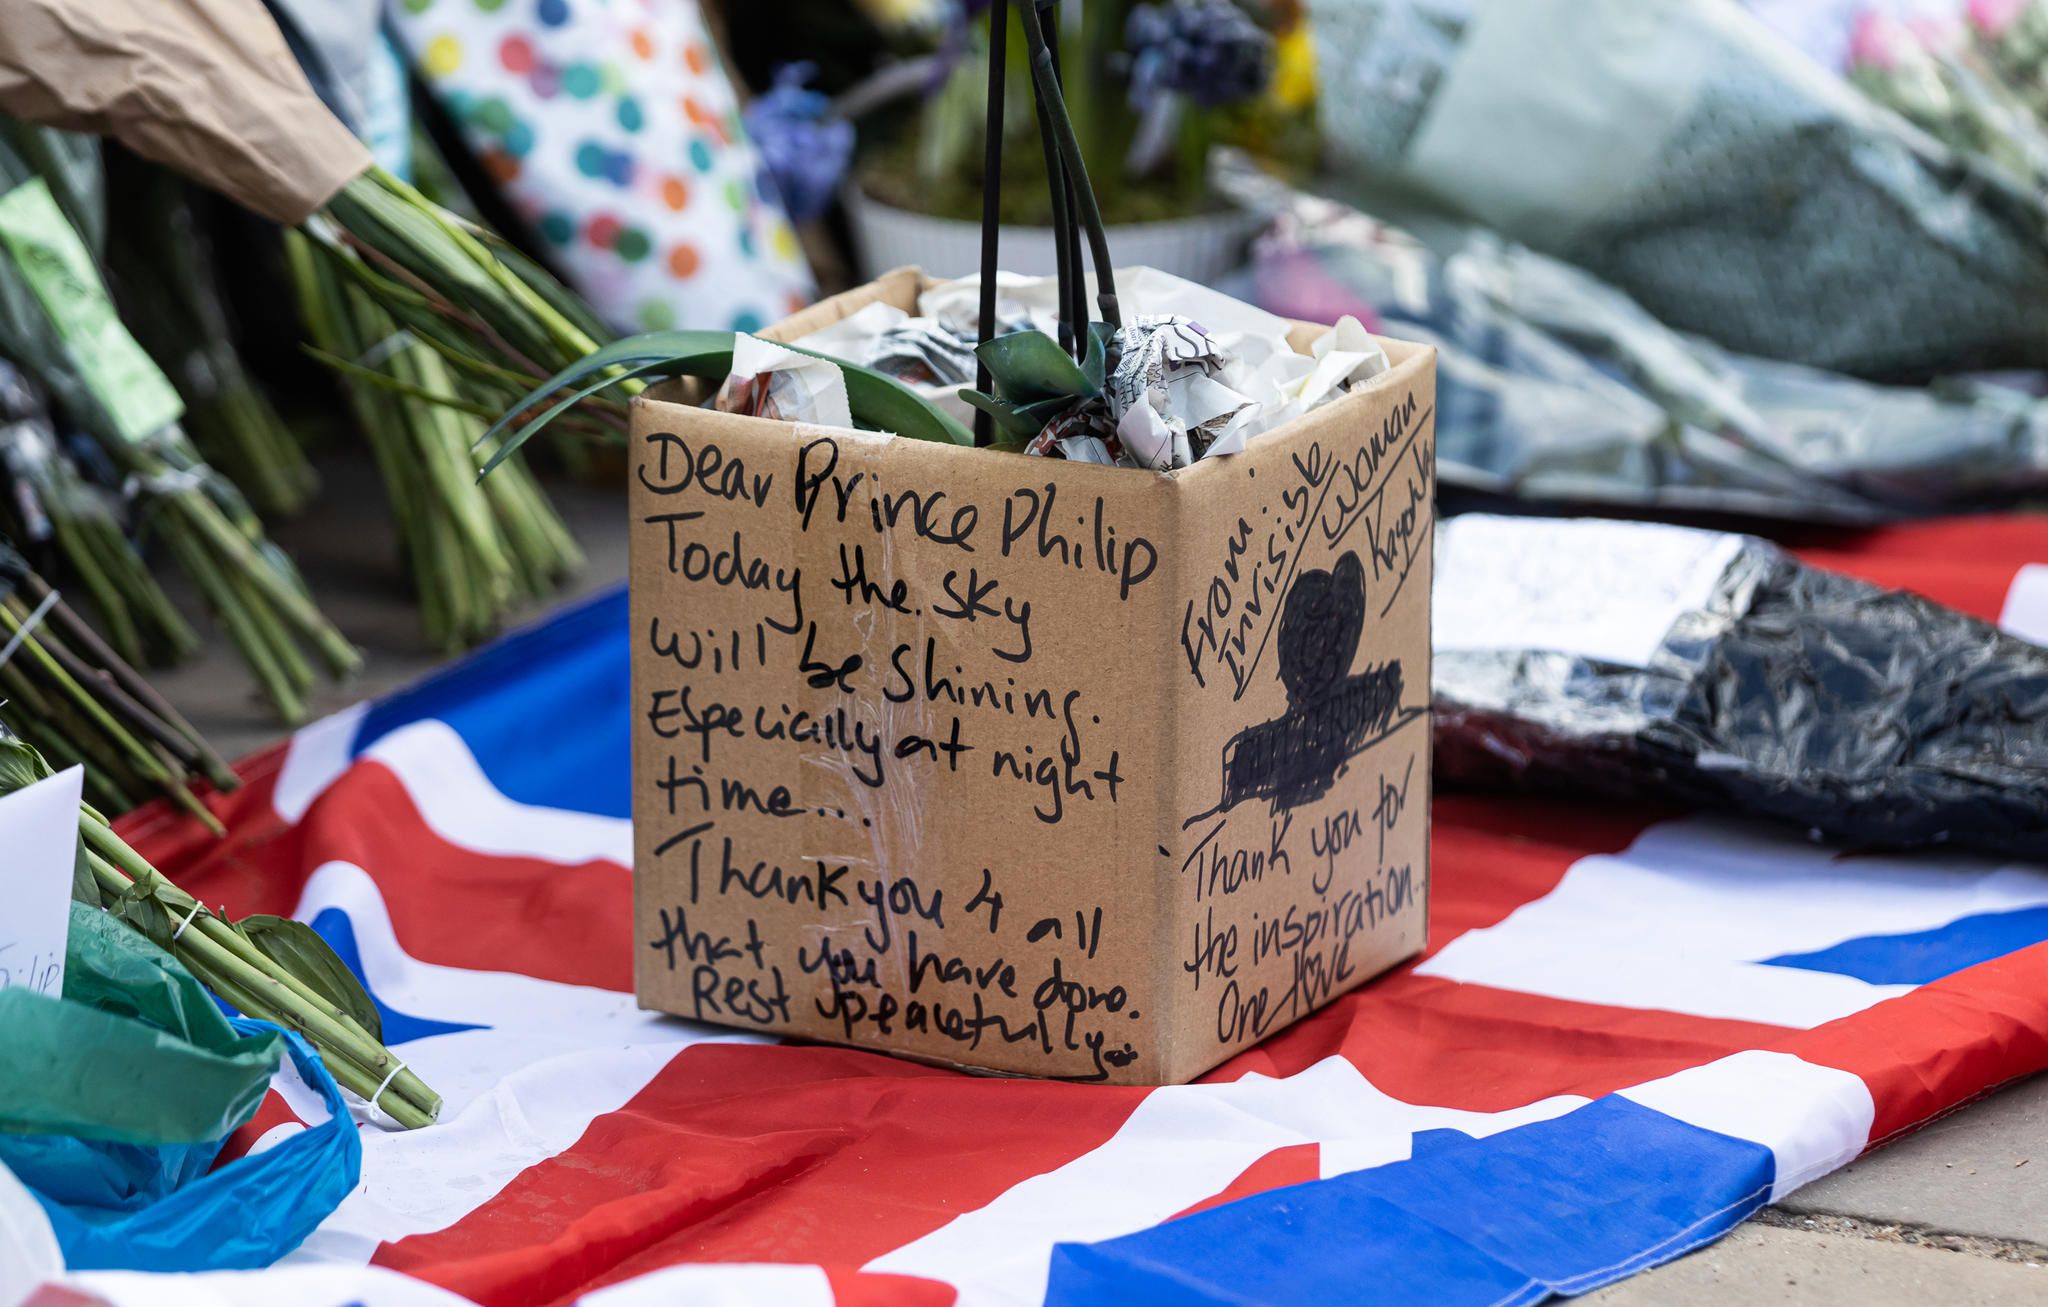 Dear Prince Philip
Today the sky
will be shining.
Especially at night
time...
Thank you 4 all
that you have done.
Rest peacefully
From:
Invisible
Woman
Thank you for
the inspiration..
One love